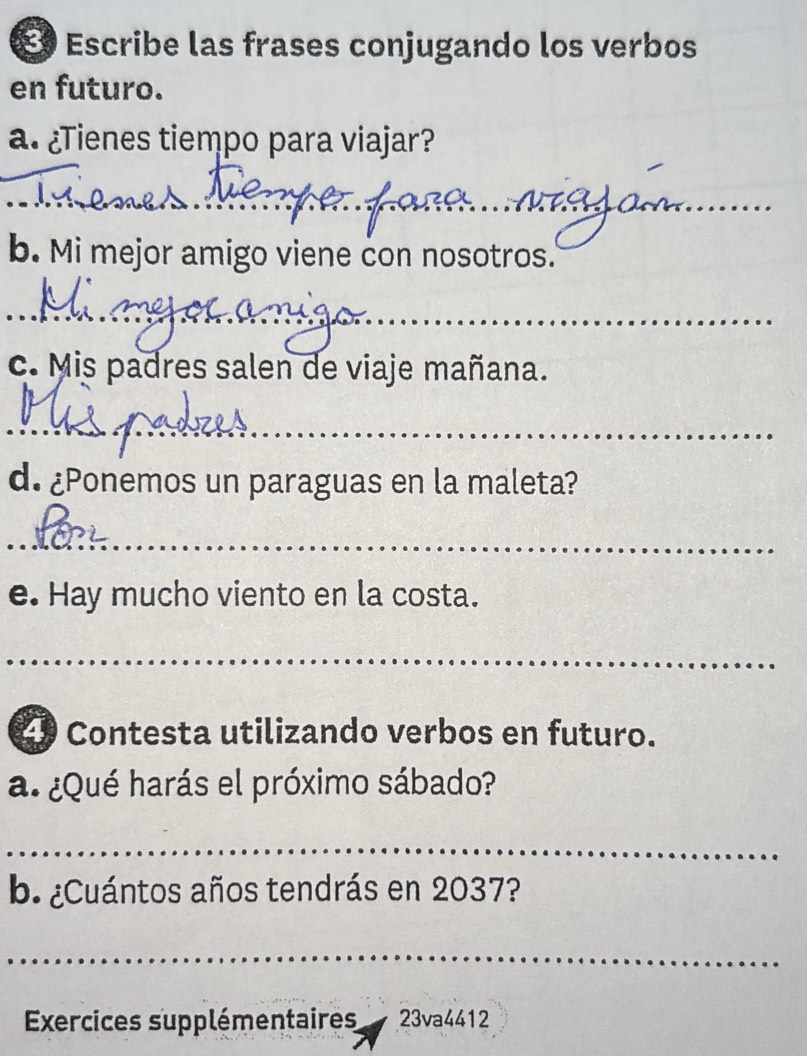 3 Escribe las frases conjugando los verbos
en futuro.
a. ¿Tienes tiempo para viajar?
Tienes tiempo para viaján
b. Mi mejor amigo viene con nosotros.
Mi mejor amigo
c. Mis padres salen de viaje mañana.
Mis padres
d. ¿Ponemos un paraguas en la maleta?
Pon
e. Hay mucho viento en la costa.
4 Contesta utilizando verbos en futuro.
a. ¿Qué harás el próximo sábado?
b. ¿Cuántos años tendrás en 2037?
Exercices supplémentaires 23va4412